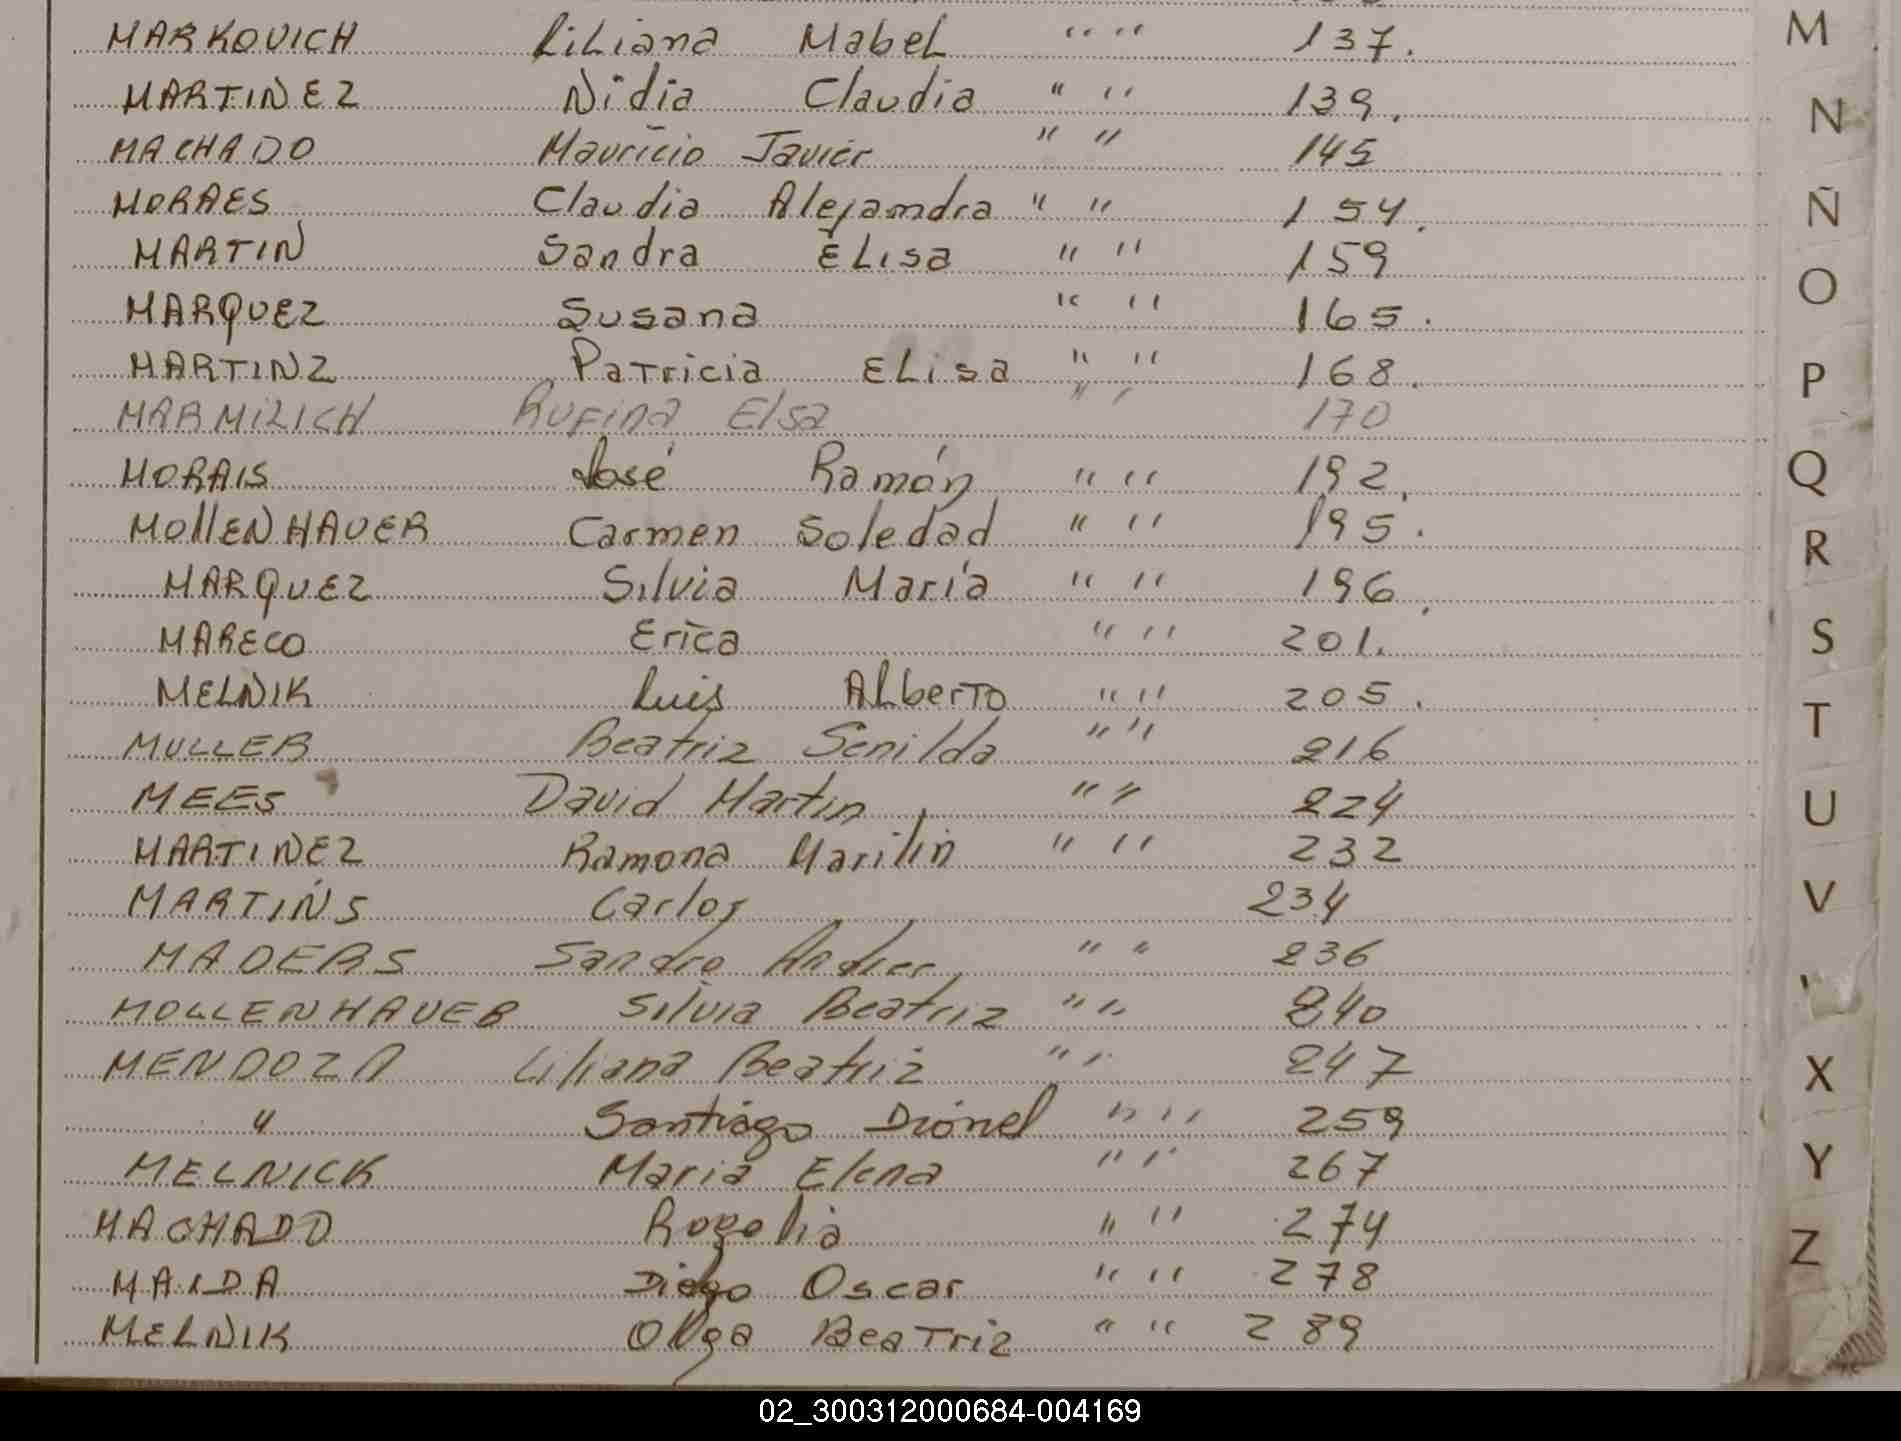 MARKOVICH Liliana Mabel " " 137.
MARTINEZ Nidia Claudia " " 139.
MACHADO Mauricio Javier " " 145
MORAES Claudia Alejandra " " 154.
MARTIN Sandra Elisa " " 159
MARQUEZ Susana " " 165.
MARTINZ Patricia Elisa " " 168.
MARMILICH Rufina Elsa " " 170
MORAIS José Ramón " " 192.
MOllENHAUER Carmen Soledad " " 195.
MARQUEZ Silvia María " " 196.
MARECO Erica " " 201.
MELNIK Luis Alberto " " 205.
MULLER Beatriz Senilda " " 216
MEES David Martin " " 224
MARTINEZ Ramona Marilin " " 232
MARTINS Carlos 234
MADERS Sandro Andres " " 236
MOLLENHAUER Silvia Beatriz " " 240
MENDOZA Liliana Beatriz " " 247
" Santiago Dionel " " 259
MELNICK Maria Elena " " 267
MACHADO Rogelia " " 274
MAIDA Diego Oscar " " 278
MELNIK Olga Beatriz " " 289
M
N
Ñ
O
P
Q
R
S
T
U
V
X
Y
Z
02_300312000684-004169